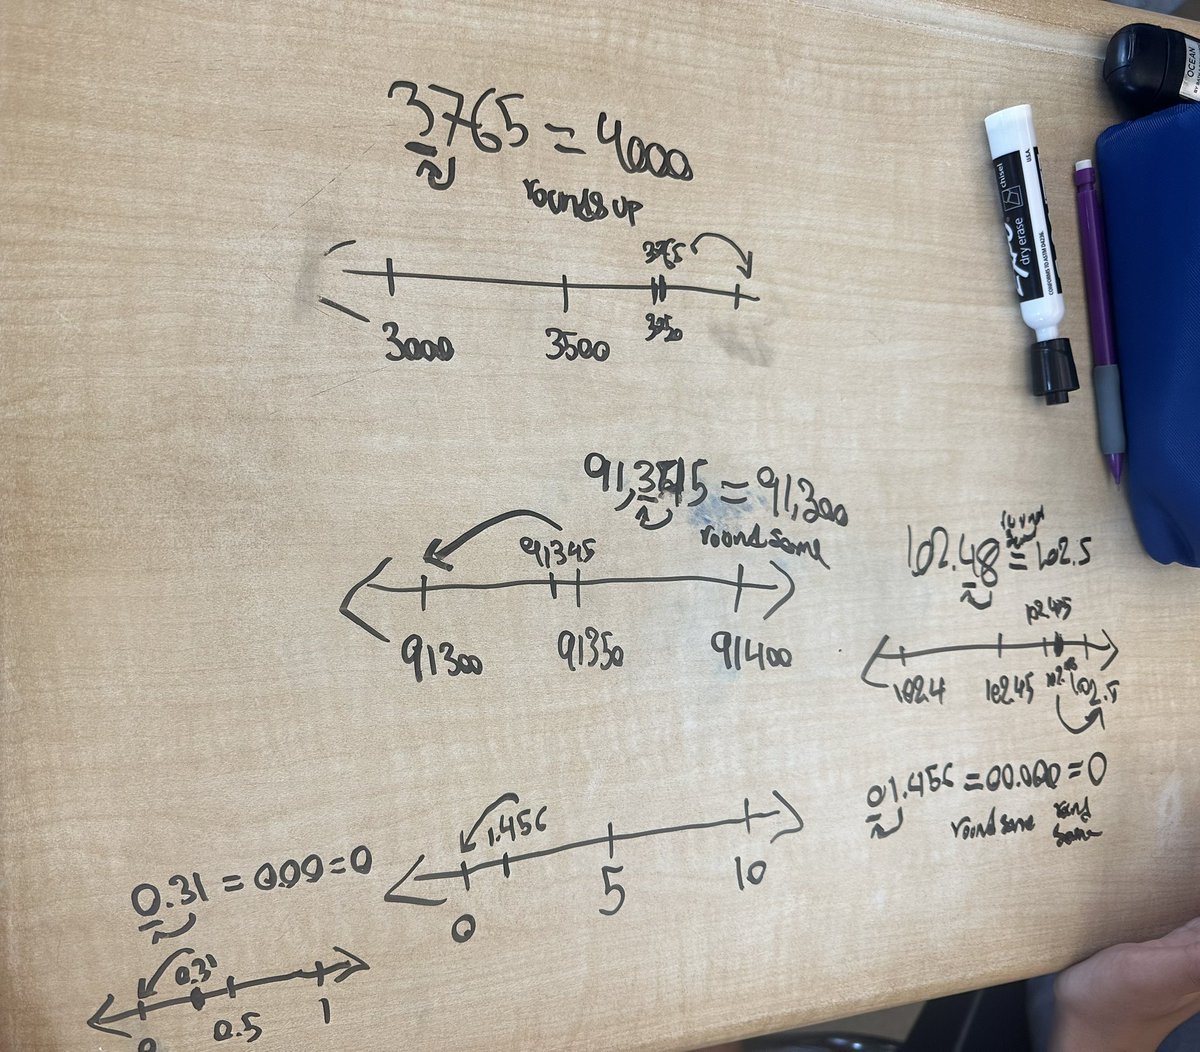 3765 = 4000
rounds up
3765
3000
3500
3750
91,345 = 91,300
round same
91345
91300
91350
91400
102.48 = 102.5
round
102.4
102.45
102.5
01.456 = 00.000 = 0
round same
round same
1.456
0
5
10
0.31 = 0.00 = 0
0.31
0
0.5
1
OCEAN
chisel
dry erase
USA
CONFORMS TO ASTM D4236